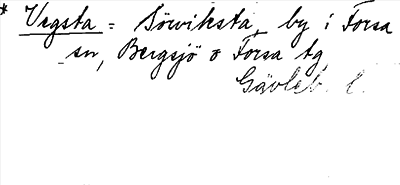 * Vegsta = Sörviksta, by i Forsa
sn, Bergsjö o Forsa tg
Gävleb. l.